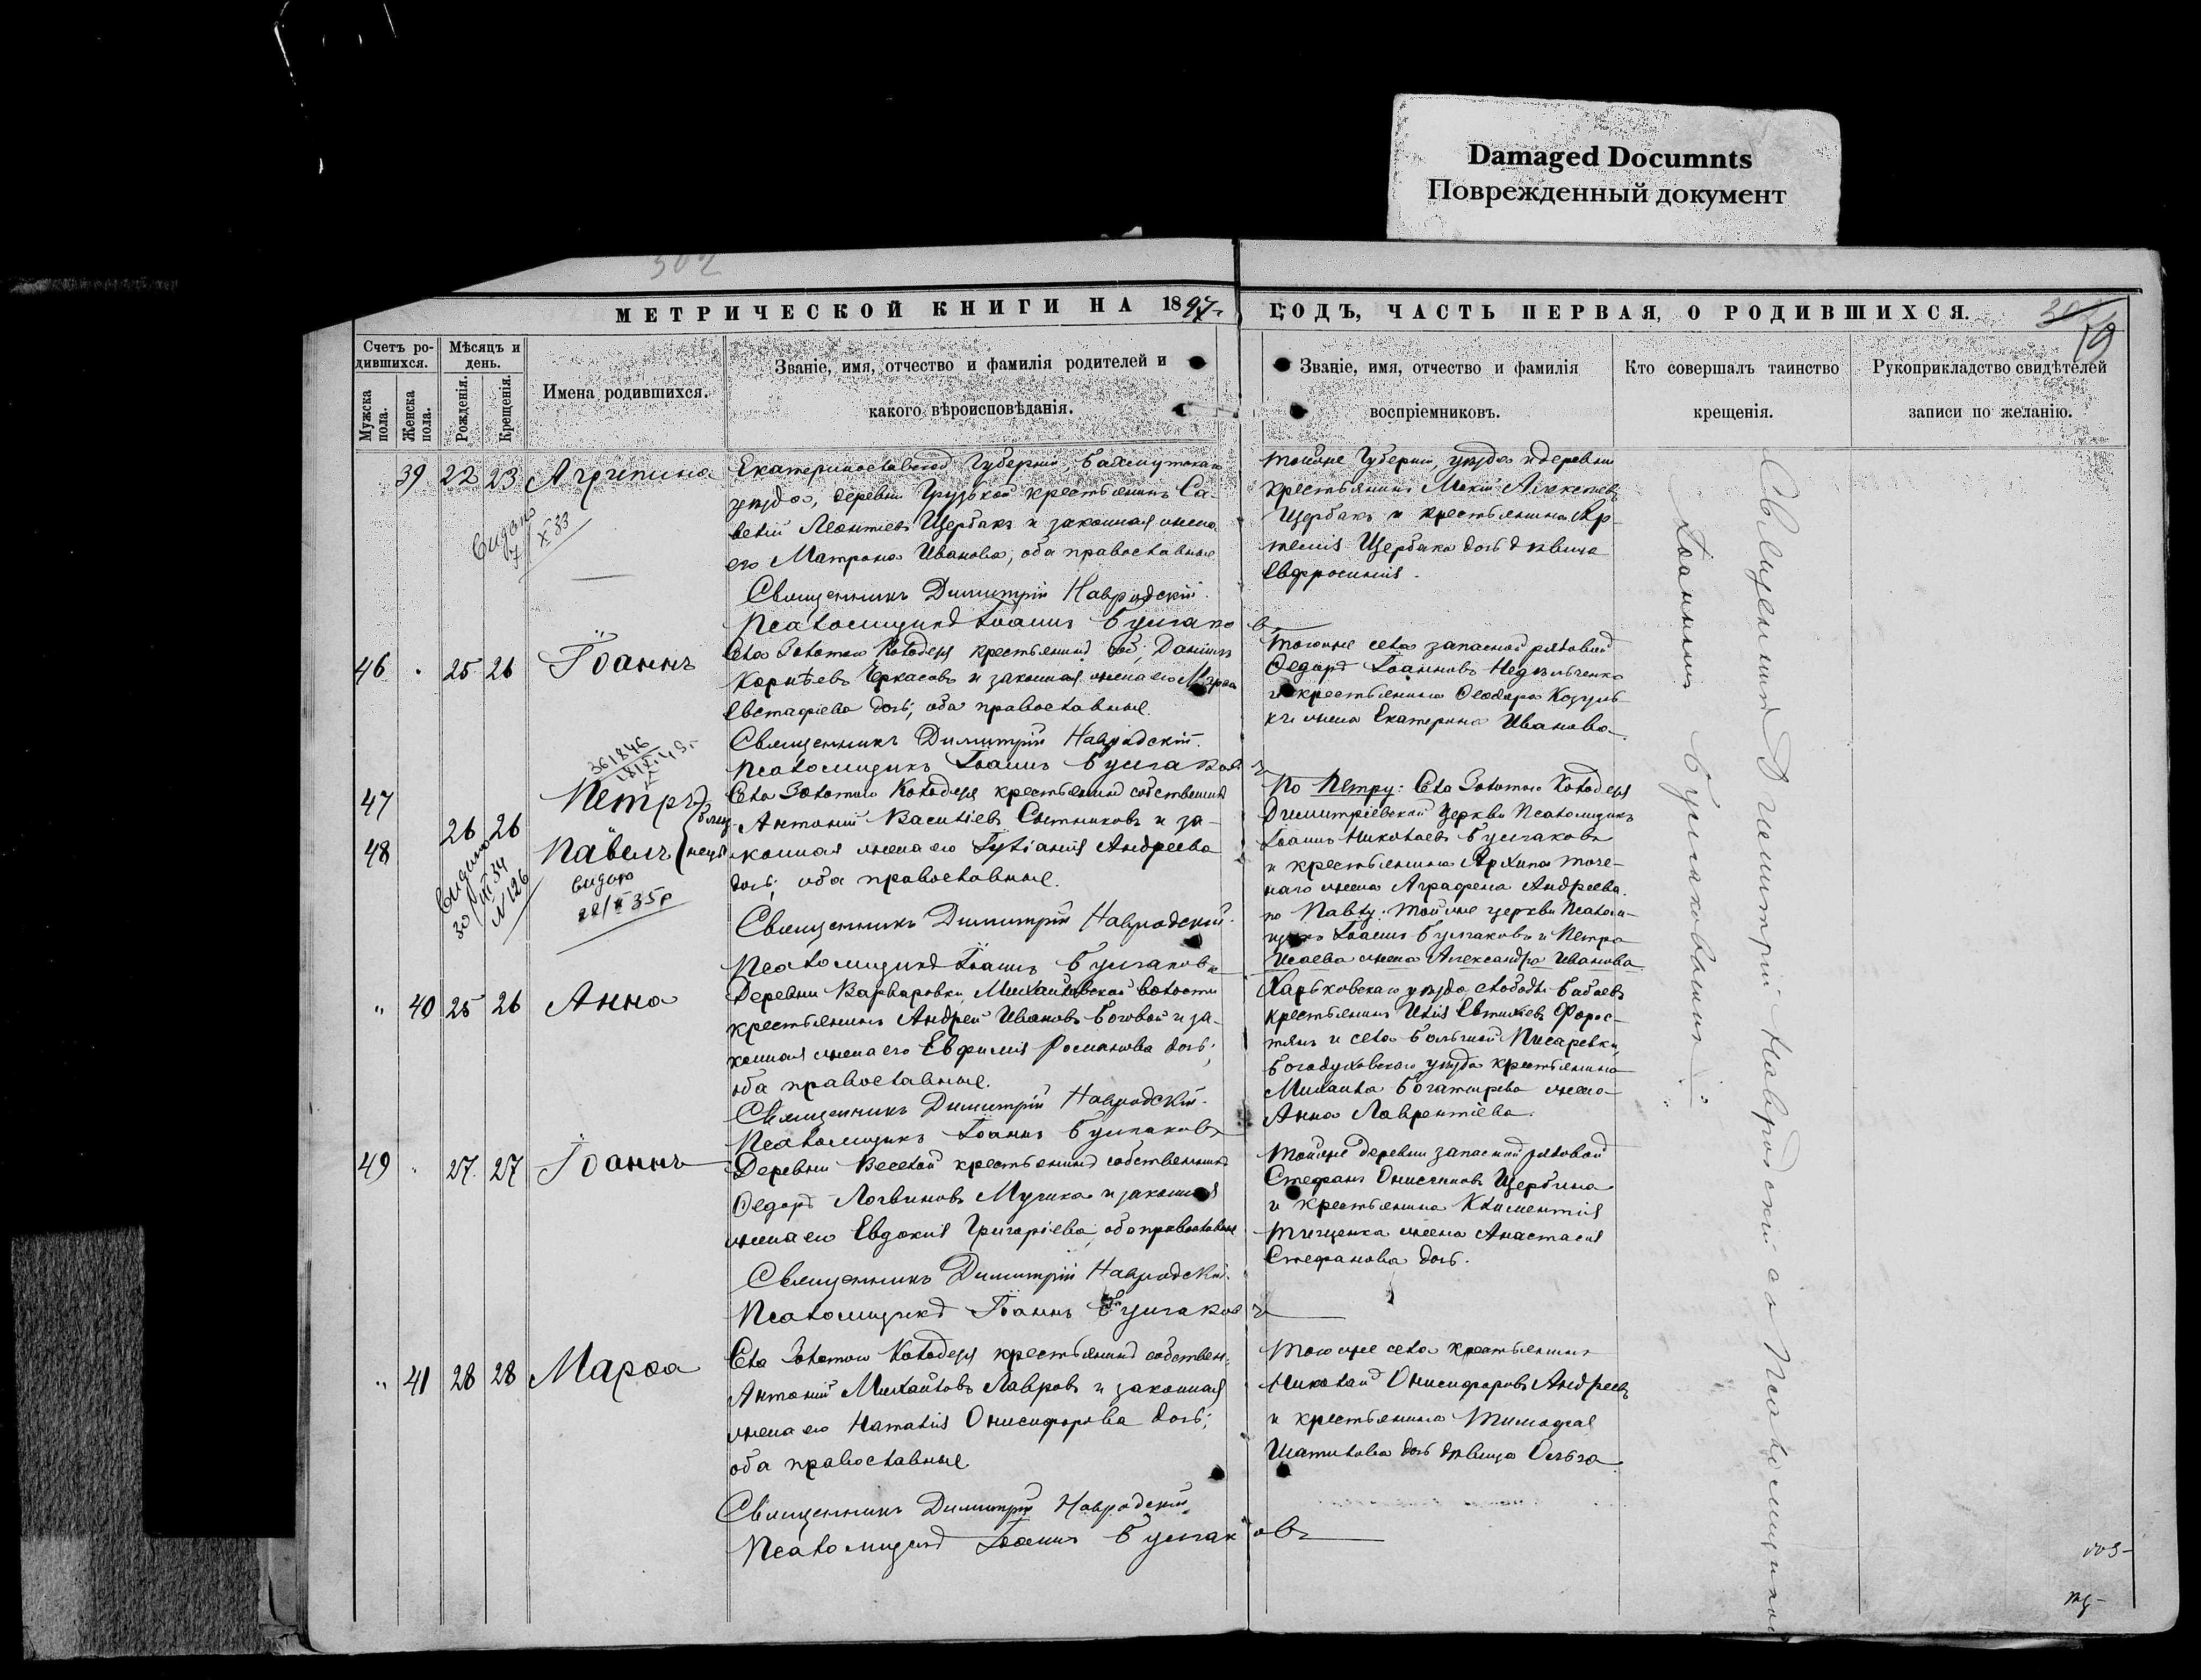 Damaged Documnts
Поврежденный документ
302
МЕТРИЧЕСКОЙ КНИГИ НА 1897 ГОДЪ, ЧАСТЬ ПЕРВАЯ, О РОДИВШИХСЯ.
Счетъ ро-
дившихся.
Мѣсяцъ и
день.
Мужска
пола.
Женска
пола.
Рожденія.
Крещенія.
Имена родившихся.
Званіе, имя, отчество и фамилія родителей и
какого вѣроисповѣданія.
Званіе, имя, отчество и фамилія
воспріемниковъ.
Кто совершалъ таинство
крещенія.
Рукоприкладство свидѣтелей
записи по желанію.
39 22 23 Агрипина
Екатеринославской Губерніи, Бахмутскаго
уѣзда, деревни Грузской крестьянинъ Са-
велій Леонтіевъ Щербакъ и законная жена
его Матрона Иванова, оба православные
Священникъ Димитрій Навродскій.
Псаломщикъ Іоаннъ Булгаковъ
тойже Губерніи, уѣзда и деревни
крестьянинъ Алексѣевъ
Щербакъ и крестьянина Ар-
темія Щербака дочь дѣвица
Евфросинія.
Видано
7/X 33
46 25 26 Іоаннъ
Села Золотого Колодезя крестьянинъ соб; Даніилъ
Корнѣевъ Черкасовъ и законная жена его Марѳа
Евстафіева дочь; оба православные.
Священникъ Димитрій Навродскій.
Псаломщикъ Іоаннъ Булгаковъ
Тогоже села запасной рядовой
Ѳедоръ Іоанновъ
и крестьянина Ѳеодора
жена Екатерина Иванова
361846
47 Петръ
26 26 близ-
48 Павелъ нецы
Села Золотого Колодезя крестьянинъ собственникъ
Антоній Василіевъ Сотниковъ и за-
конная жена его Іуліанія Андреева
дочь; оба православные.
Священникъ Димитрій Навродскій.
Псаломщикъ Іоаннъ Булгаковъ
По Петру: Села Золотого Колодезя
Димитріевской Церкви Псаломщикъ
Іоаннъ Николаевъ Булгаковъ
и крестьянина Архипа
жена Аграфена Андреева.
по Павлу: тойже церкви Псалом-
щикъ Іоаннъ Булгаковъ и Петра
Исаева жена Александра Иванова
Видано
30/III 34
N 126
видано
22/X 35 р
" 40 25 26 Анна
Деревни Варваровки, Михайловской волости
крестьянинъ Андрей Ивановъ Боговой и за-
конная жена его Евфимія Романова дочь;
оба православные.
Священникъ Димитрій Навродскій.
Псаломщикъ Іоаннъ Булгаковъ
Харьковскаго уѣзда слободы Бабаевъ
крестьянинъ Илія
и села Большой Писаревки,
Богодуховскаго уѣзда крестьянина
Михаила Богатырева жена
Анна Лаврентіева.
49 27 27 Іоаннъ
Деревни Веселой крестьянинъ собственникъ
Ѳедоръ Логвиновъ и законная
жена его Евдокія Григоріева, оба православные
Священникъ Димитрій Навродскій.
Псаломщикъ Іоаннъ Булгаковъ
Тойже деревни запасной рядовой
Стефанъ Онисимовъ Щербина
и крестьянина Климентія
жена Анастасія
Стефанова дочь.
" 41 28 28 Марѳа
Села Золотого Колодезя крестьянинъ собствен.
Антоній Михайловъ Лавровъ и законная
жена его Наталія Онисифорова дочь;
оба православные
Священникъ Димитрій Навродскій,
Псаломщикъ Іоаннъ Булгаковъ
Тогоже села крестьянинъ
Николай Онисифоровъ Андреевъ
и крестьянина Тимофея
Шатилова дочь дѣвица Ольга.
Священникъ Димитрій Навродскій со Псаломщикомъ
Іоанномъ Булгаковымъ.